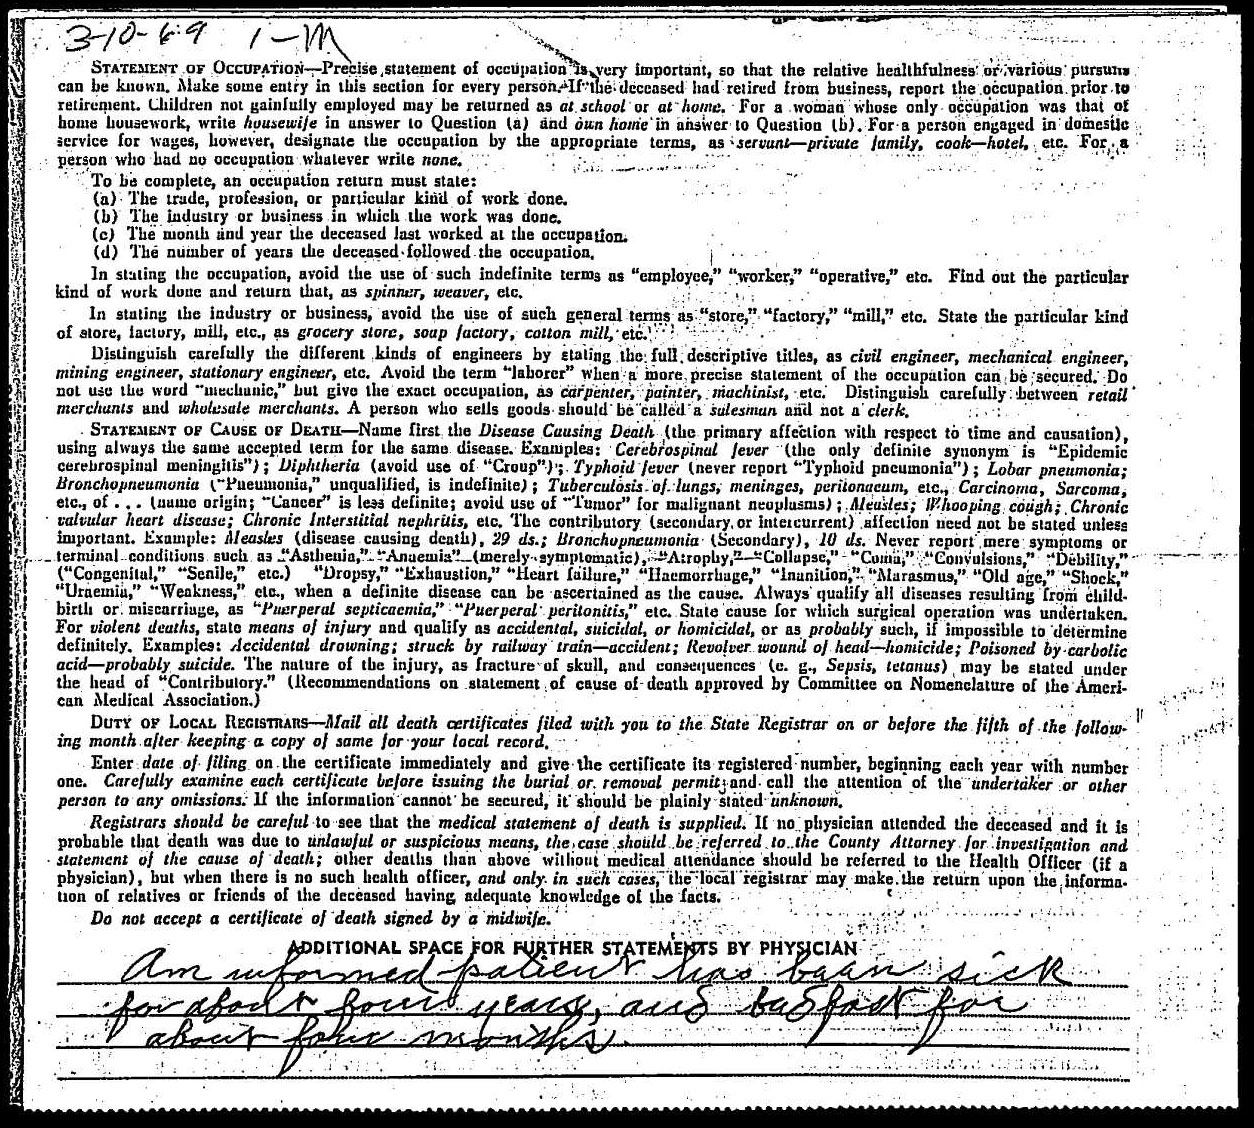 3-10-69 1-M
STATEMENT OF OCCUPATION—Precise statement of occupation is very important, so that the relative healthfulness or various pursuits
can be known. Make some entry in this section for every person. If the deceased had retired from business, report the occupation prior to
retirement. Children not gainfully employed may be returned as at school or at home. For a woman whose only occupation was that of
home housework, write housewife in answer to Question (a) and own home in answer to Question (b). For a person engaged in domestic
service for wages, however, designate the occupation by the appropriate terms, as servant—private family, cook—hotel, etc. For a
person who had no occupation whatever write none.
To be complete, an occupation return must state:
(a) The trade, profession, or particular kind of work done.
(b) The industry or business in which the work was done.
(c) The month and year the deceased last worked at the occupation.
(d) The number of years the deceased followed the occupation.
In stating the occupation, avoid the use of such indefinite terms as “employee,” “worker,” “operative,” etc. Find out the particular
kind of work done and return that, as spinner, weaver, etc.
In stating the industry or business, avoid the use of such general terms as “store,” “factory,” “mill,” etc. State the particular kind
of store, factory, mill, etc., as grocery store, soap factory, cotton mill, etc.
Distinguish carefully the different kinds of engineers by stating the full descriptive titles, as civil engineer, mechanical engineer,
mining engineer, stationary engineer, etc. Avoid the term “laborer” when a more precise statement of the occupation can be secured. Do
not use the word “mechanic,” but give the exact occupation, as carpenter, painter, machinist, etc. Distinguish carefully between retail
merchants and wholesale merchants. A person who sells goods should be called a salesman and not a clerk.
STATEMENT OF CAUSE OF DEATH—Name first the Disease Causing Death (the primary affection with respect to time and causation),
using always the same accepted term for the same disease. Examples: Cerebrospinal fever (the only definite synonym is “Epidemic
cerebrospinal meningitis”); Diphtheria (avoid use of “Croup”); Typhoid fever (never report “Typhoid pneumonia”); Lobar pneumonia;
Bronchopneumonia (“Pneumonia,” unqualified, is indefinite); Tuberculosis of lungs, meninges, peritonaeum, etc., Carcinoma, Sarcoma,
etc., of . . . (name origin; “Cancer” is less definite; avoid use of “Tumor” for malignant neoplasms); Measles; Whooping cough; Chronic
valvular heart disease; Chronic Interstitial nephritis, etc. The contributory (secondary or intercurrent) affection need not be stated unless
important. Example: Measles (disease causing death), 29 ds.; Bronchopneumonia (Secondary), 10 ds. Never report mere symptoms or
terminal conditions such as “Asthenia,” “Anaemia” (merely symptomatic), “Atrophy,” “Collapse,” “Coma,” “Convulsions,” “Debility,”
(“Congenital,” “Senile,” etc.) “Dropsy,” “Exhaustion,” “Heart failure,” “Haemorrhage,” “Inanition,” “Marasmus,” “Old age,” “Shock,”
“Uraemia,” “Weakness,” etc., when a definite disease can be ascertained as the cause. Always qualify all diseases resulting from child-
birth or miscarriage, as “Puerperal septicaemia,” “Puerperal peritonitis,” etc. State cause for which surgical operation was undertaken.
For violent deaths, state means of injury and qualify as accidental, suicidal, or homicidal, or as probably such, if impossible to determine
definitely. Examples: Accidental drowning; struck by railway train—accident; Revolver wound of head—homicide; Poisoned by carbolic
acid—probably suicide. The nature of the injury, as fracture of skull, and consequences (e. g., Sepsis, tetanus) may be stated under
the head of “Contributory.” (Recommendations on statement of cause of death approved by Committee on Nomenclature of the Ameri-
can Medical Association.)
DUTY OF LOCAL REGISTRARS—Mail all death certificates filed with you to the State Registrar on or before the fifth of the follow-
ing month after keeping a copy of same for your local record.
Enter date of filing on the certificate immediately and give the certificate its registered number, beginning each year with number
one. Carefully examine each certificate before issuing the burial or removal permit and call the attention of the undertaker or other
person to any omissions. If the information cannot be secured, it should be plainly stated unknown.
Registrars should be careful to see that the medical statement of death is supplied. If no physician attended the deceased and it is
probable that death was due to unlawful or suspicious means, the case should be referred to the County Attorney for investigation and
statement of the cause of death; other deaths than above without medical attendance should be referred to the Health Officer (if a
physician), but when there is no such health officer, and only in such cases, the local registrar may make the return upon the informa-
tion of relatives or friends of the deceased having adequate knowledge of the facts.
Do not accept a certificate of death signed by a midwife.
ADDITIONAL SPACE FOR FURTHER STATEMENTS BY PHYSICIAN
Am informed patient has been sick
for about four years, and badfast for
about four months.